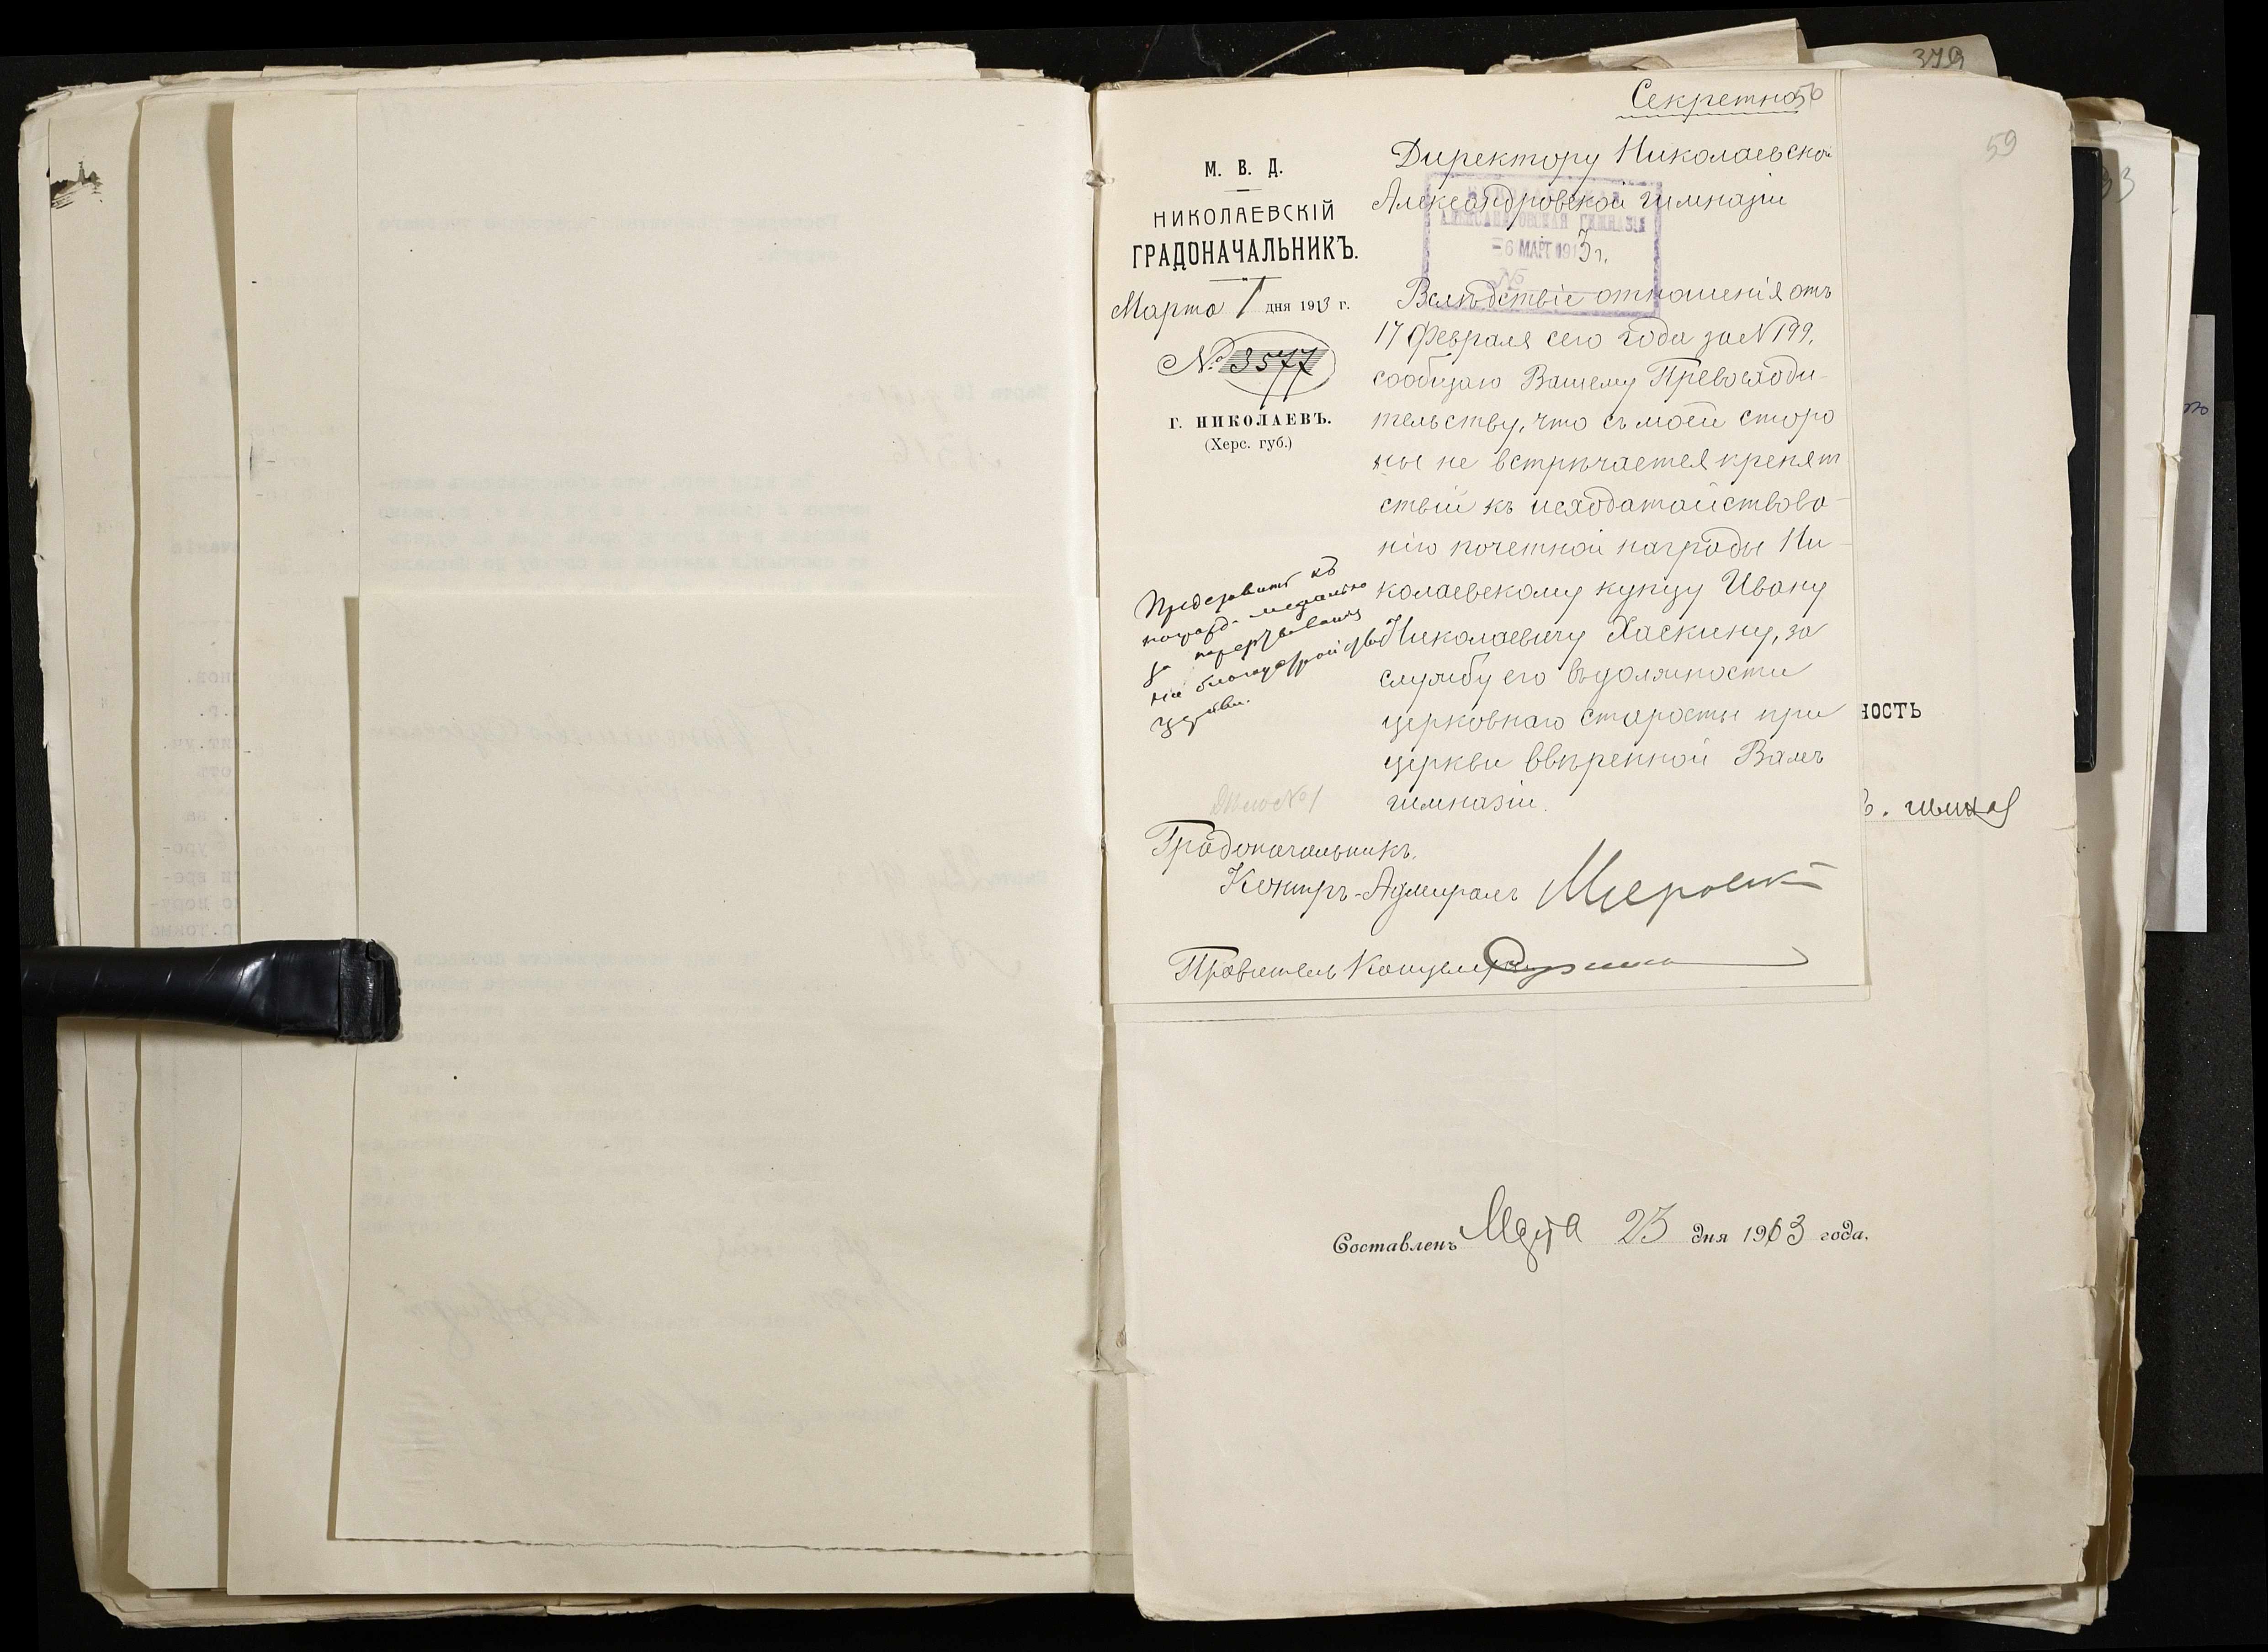 379
Секретно 56
59
М. В. Д.
НИКОЛАЕВСКІЙ
ГРАДОНАЧАЛЬНИКЪ.
Марта 1 дня 1913 г.
№ 3577
Г. НИКОЛАЕВЪ.
(Херс. губ.)
Директору Николаевской
Александровской гимназіи
АЛЕКСАНДРОВСКАЯ ГИМНАЗІЯ
6 МАРТ 1913 г.
№
Вслѣдствіе отношенія отъ
17 Февраля сего года за N 199,
сообщаю Вашему Превосходи-
тельству, что съ моей сторо
ны не встрѣчается препят
ствій къ исходатайствова-
нію почетной награды Ни-
колаевскому купцу Ивану
Николаевичу Хаскину, за
службу его въ должности
церковнаго старосты при
церкви ввѣренной Вамъ
гимназіи.
Представить къ
медалью
за пожертвованія
на
церкви.
Дѣло № 1
Градоначальникъ,
Контръ-Адмиралъ
Правитель Канцеляріи
НОСТЬ
Составленъ Марта 23 дня 1913 года.